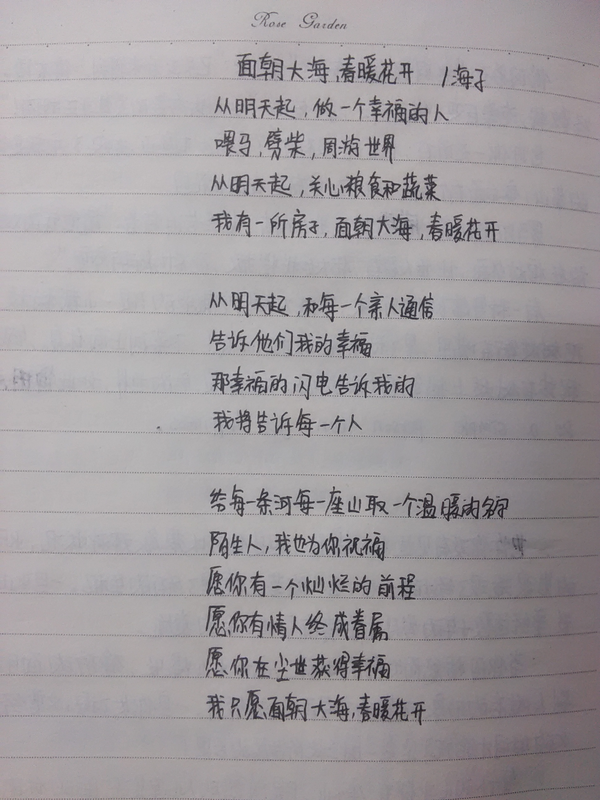 Rose Garden
面朝大海,春暖花开 /海子
从明天起,做一个幸福的人
喂马,劈柴,周游世界
从明天起,关心粮食和蔬菜
我有一所房子,面朝大海,春暖花开
从明天起,和每一个亲人通信
告诉他们我的幸福
那幸福的闪电告诉我的
我将告诉每一个人
给每一条河每一座山取一个温暖的名字
陌生人,我也为你祝福
愿你有一个灿烂的前程
愿你有情人终成眷属
愿你在尘世获得幸福
我只愿面朝大海,春暖花开